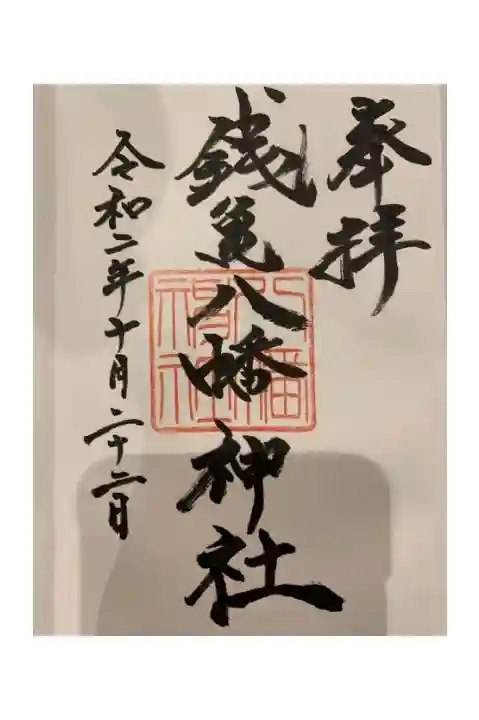 奉拝
銭亀八幡神社
八幡神社
令和二年十月二十二日